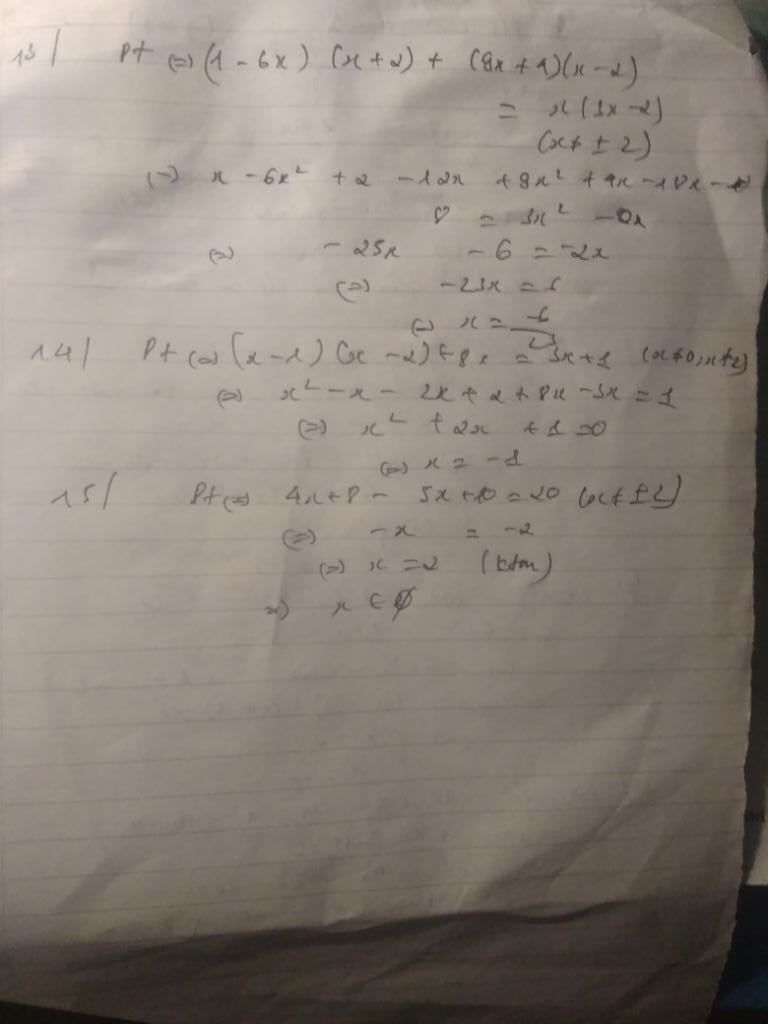 13/ Pt (=) (1 - 6x) (x + 2) + (9x + 4)(x - 2)
= x (3x - 2)
(x ≠ ± 2)
(=) x - 6x² + 2 - 12x + 9x² + 4x - 18x -
8 = 3x² - 2x
(=) - 25x - 6 = -2x
(=) - 23x = 6
(=) x = -6/23
14/ Pt (=) (x - 1) (x - 2) + 8x = 3x + 1 (x ≠ 0, x ≠ 2)
(=) x² - x - 2x + 2 + 8x - 3x = 1
(=) x² + 2x + 1 = 0
(=) x = - 1
15/ Pt (=) 4x + 8 - 5x + 10 = 20 (x ≠ ± 2)
(=) - x = - 2
(=) x = 2 (ktm)
=) x ∈ ∅